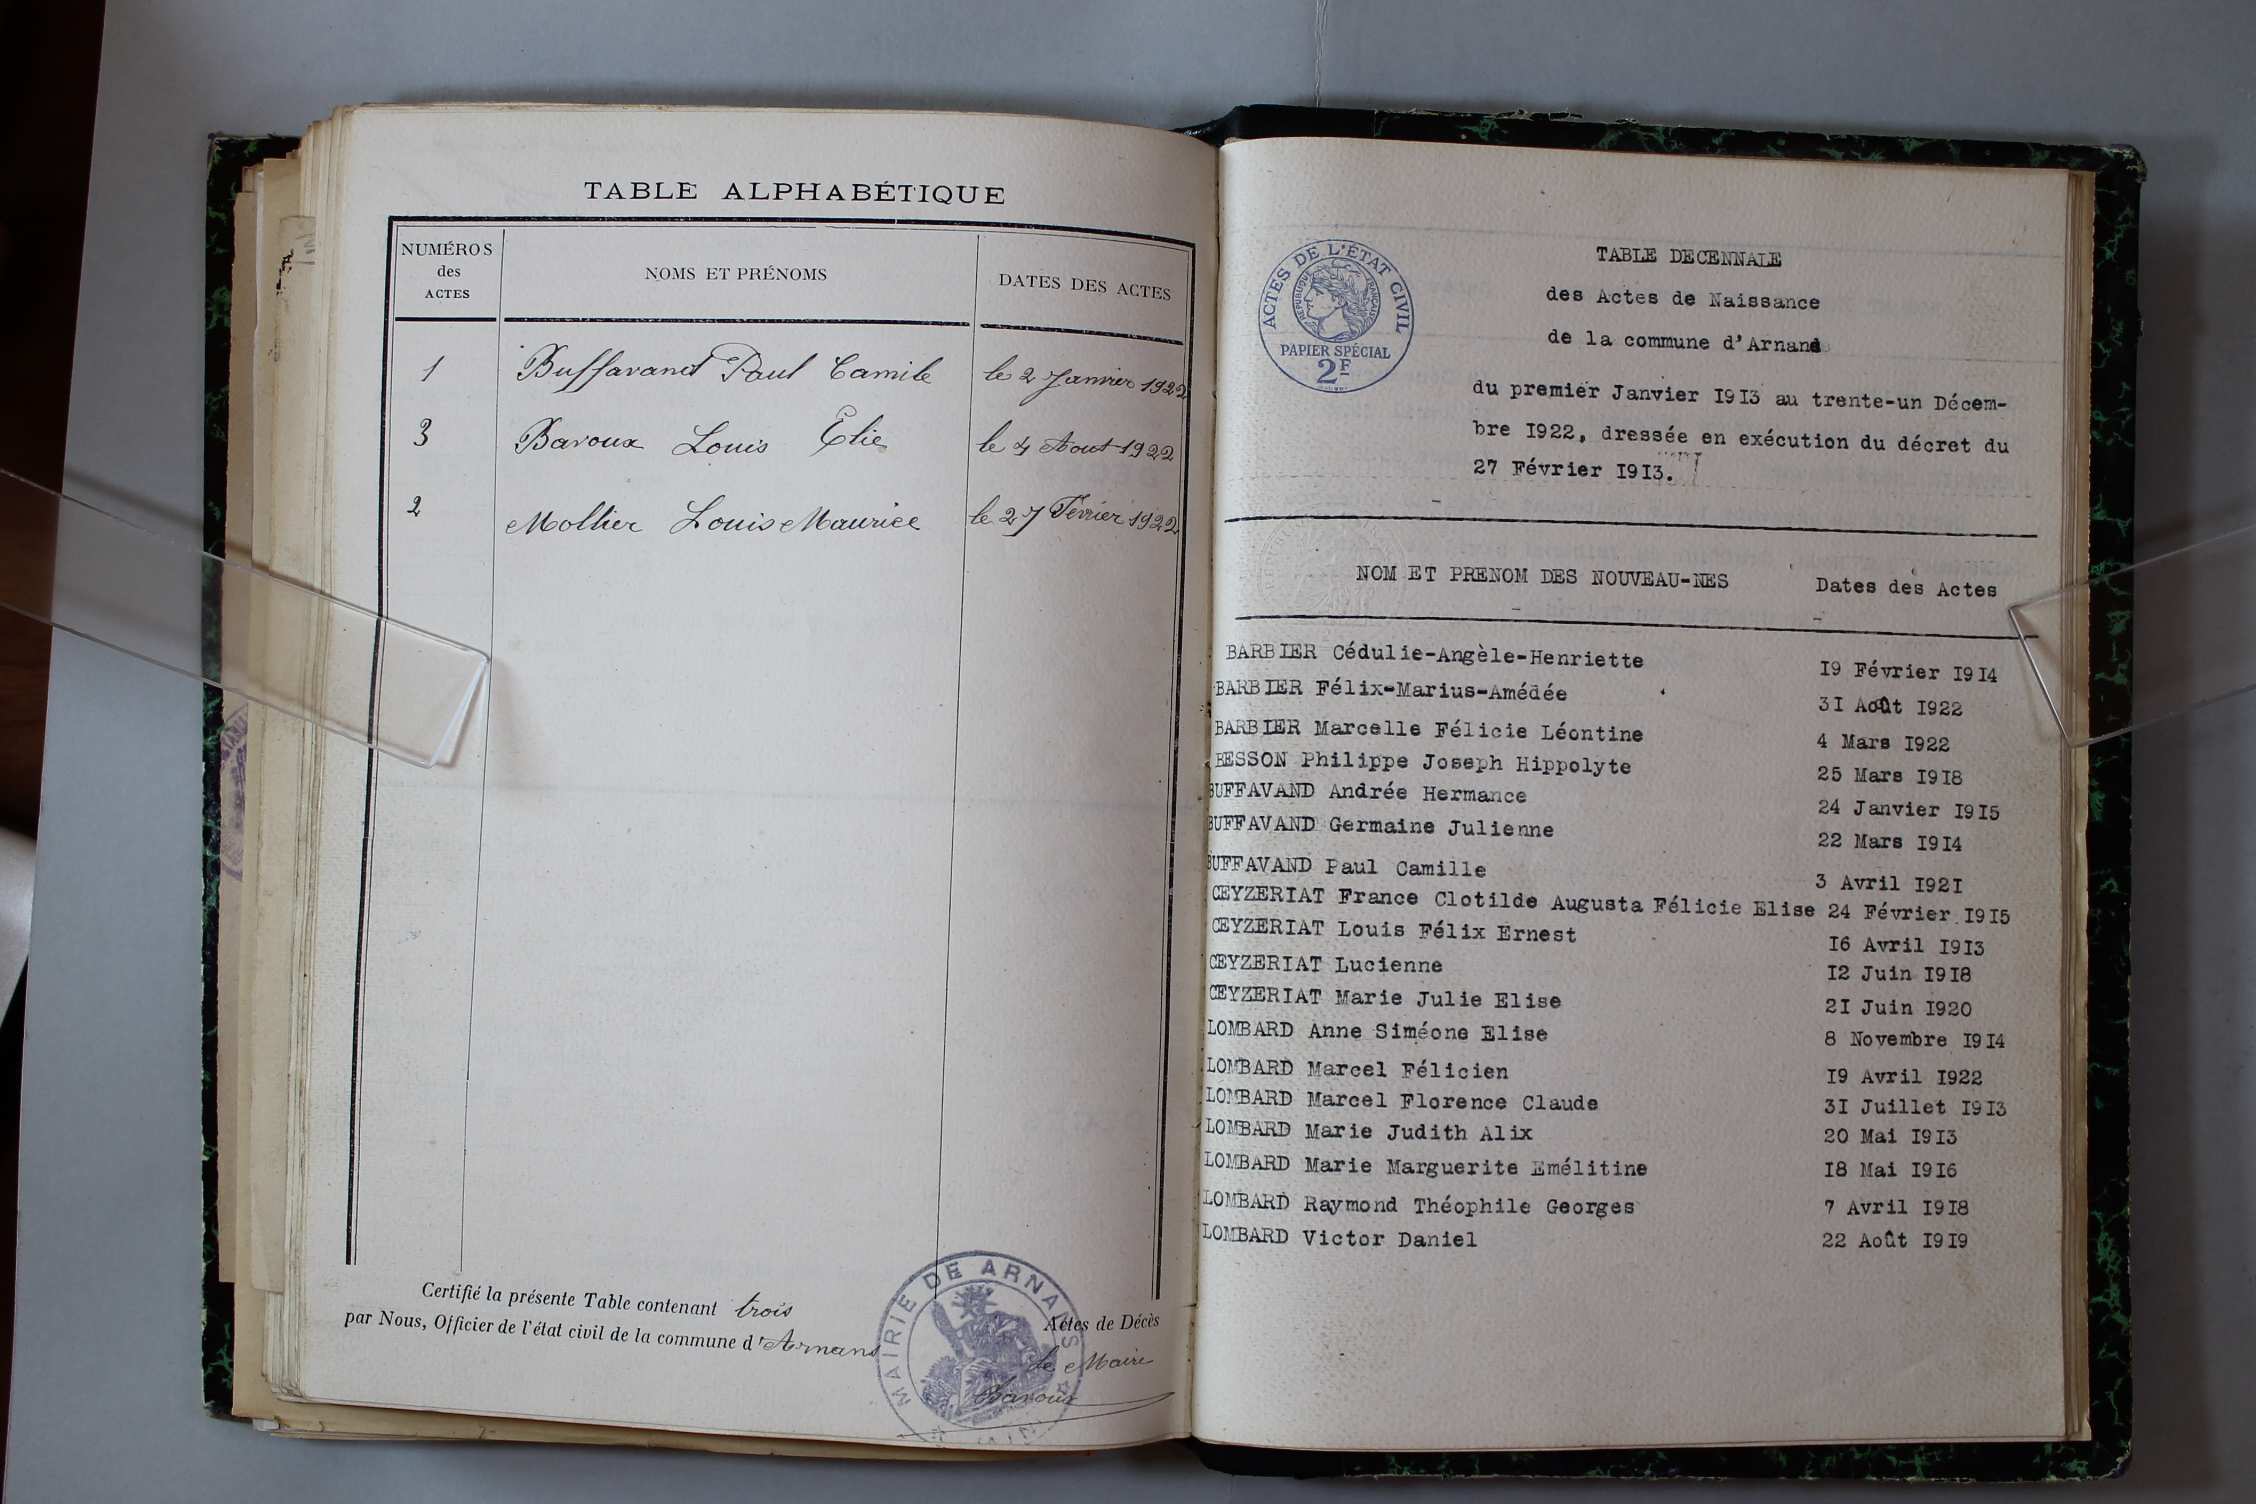 TABLE ALPHABÉTIQUE
NUMÉROS
des
ACTES
NOMS ET PRÉNOMS
DATES DES ACTES
1 Buffavand Paul Camile le 2 Janvier 1922
3 Baroux Louis Élie le 4 Aout 1922
2 Mollier Louis Maurice le 27 Février 1922
Certifié la présente Table contenant trois Actes de Décès
par Nous, Officier de l'état civil de la commune d'Arnans
Le Maire
Baroux
MAIRIE DE ARNANS
ACTES DE L'ÉTAT CIVIL
RÉPUBLIQUE FRANÇAISE
PAPIER SPÉCIAL
2F
TABLE DECENNALE
des Actes de Naissance
de la commune d'Arnans
du premier Janvier I9I3 au trente-un Décem-
bre I922, dressée en exécution du décret du
27 Février I9I3.
NOM ET PRENOM DES NOUVEAU-NES Dates des Actes
BARBIER Cédulie-Angèle-Henriette I9 Février I9I4
BARBIER Félix-Marius-Amédée 3I Août I922
BARBIER Marcelle Félicie Léontine 4 Mars I922
BESSON Philippe Joseph Hippolyte 25 Mars I9I8
BUFFAVAND Andrée Hermance 24 Janvier I9I5
BUFFAVAND Germaine Julienne 22 Mars I9I4
BUFFAVAND Paul Camille 3 Avril I92I
CEYZERIAT France Clotilde Augusta Félicie Elise 24 Février I9I5
CEYZERIAT Louis Félix Ernest I6 Avril I9I3
CEYZERIAT Lucienne I2 Juin I9I8
CEYZERIAT Marie Julie Elise 2I Juin I920
LOMBARD Anne Siméone Elise 8 Novembre I9I4
LOMBARD Marcel Félicien I9 Avril I922
LOMBARD Marcel Florence Claude 3I Juillet I9I3
LOMBARD Marie Judith Alix 20 Mai I9I3
LOMBARD Marie Marguerite Emélitine I8 Mai I9I6
LOMBARD Raymond Théophile Georges 7 Avril I9I8
LOMBARD Victor Daniel 22 Août I9I9